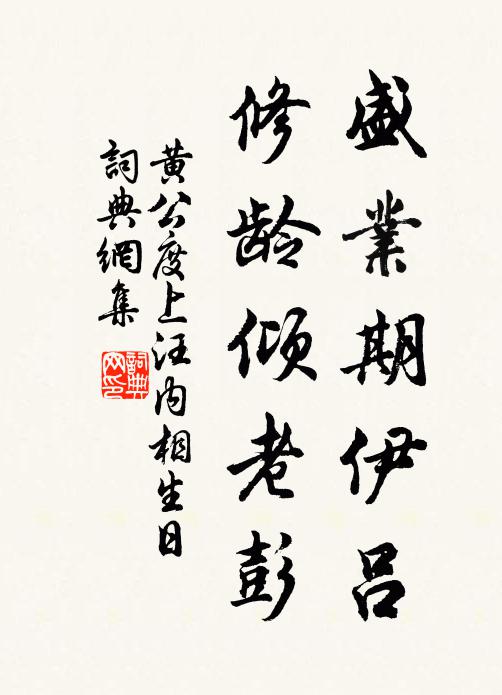 盛業期伊吕
修龄傾老彭
黄公度上汪内相生日
詞典網集
詞典网印